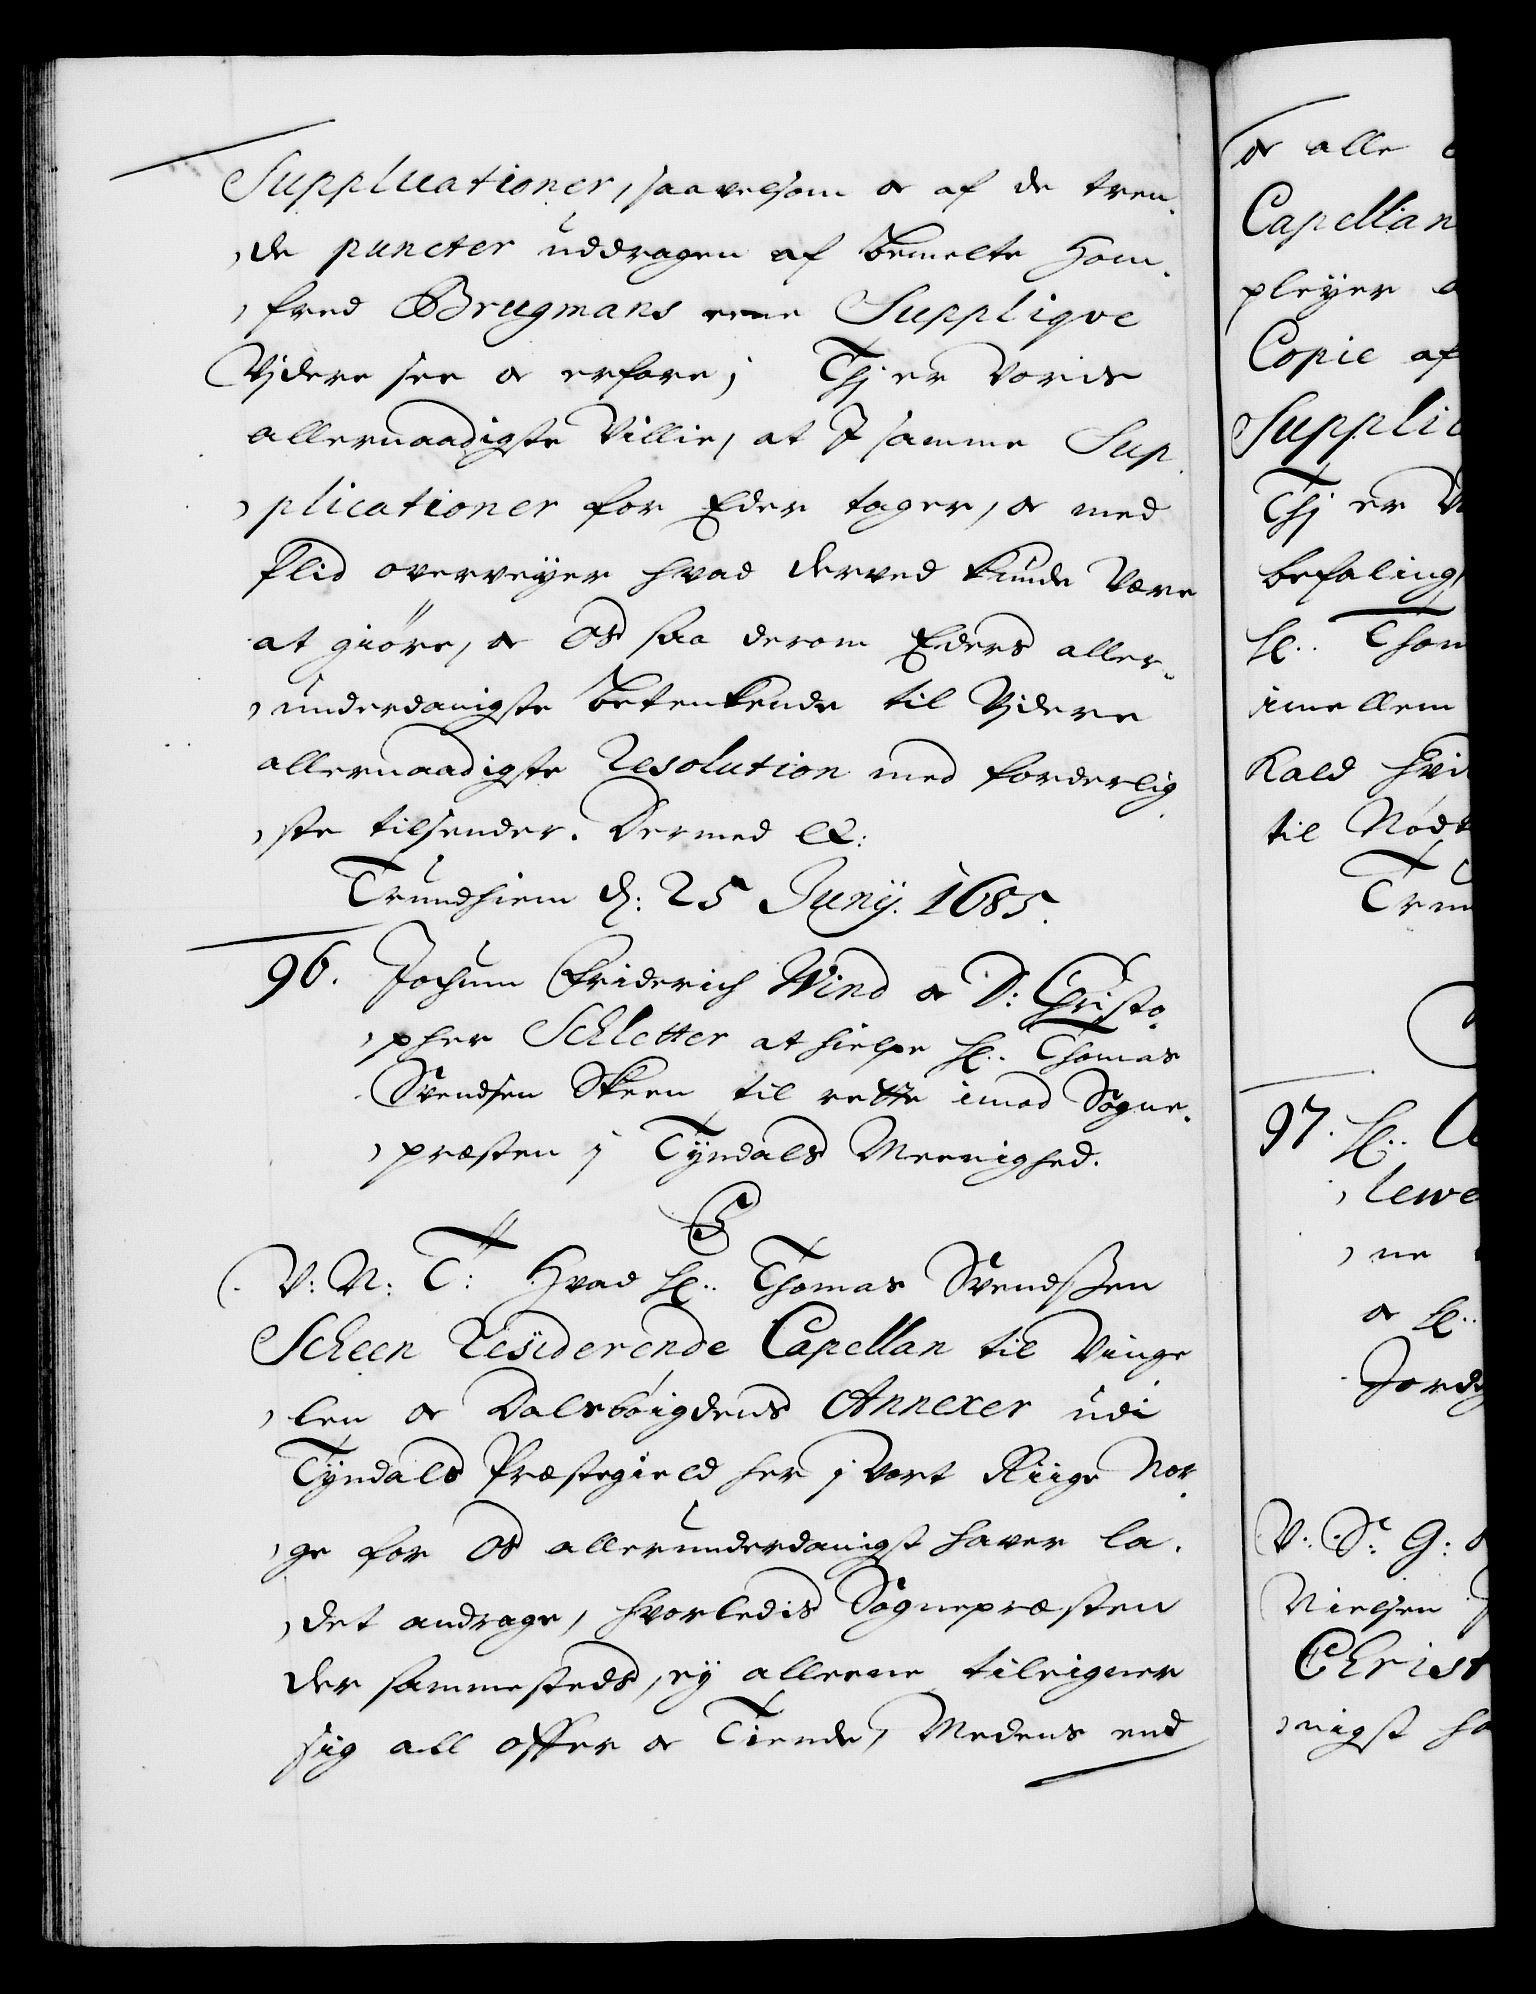 Supplicationer, saavelsom og af de tven-
de puncter uddragen af bemelte Hom-
fred Brugmans eene Supplique
Vjdere see og erfare; Thj er Voris
allernaadigste Villie, at I samme Sup-
plicationer for Eder tager, og med
Flid overveyer hvad derved kunde være
at giøre, og Os saa derom Eders aller-
underdanigste betenkende til Vjdere
allernaadigste Resolution med forderlig-
ste tilsender. Dermed &:
Trundhiem d: 25 Junij. 1685.
96. Jochum Friderich Wind og D: Christo-
pher Schletter at hielpe Hr. Thomas
Svendsen Skeen til rette imod Sogne-
præsten j Tyndals Meenighed.
C5
V: N: T: Hvad Hr. Thomas Svendsßen
Scheen Residerende Capellan til Vinge
len og Dalsbøigdens Annexer udi
Tyndals Præstegield her j Vort Riige Nor-
ge for Os allerunderdanigst haver la-
det andrage, hvorledis Sognepræsten
der sammesteds, ey alleene tileigner
sig all offer og Tiende, Medens end
og alle
Capellan
pleyer
Copie af
Supplic
Thj er V
befaling,
Hr. Thom
imellem
Kald hvi
til Nødt
Tru
97. Hr.
lewe
ne
og Hr.
Jord
V: S: G:
Nielsen
Christ
nigst ha